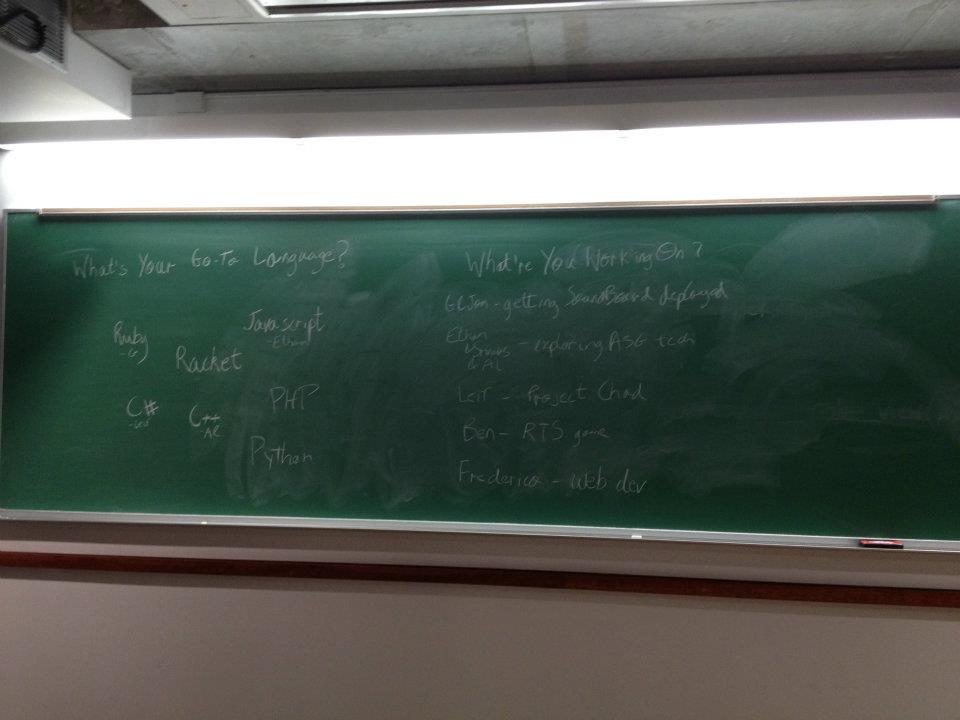 What's Your Go-To Language?
Ruby
-G
Racket
Javascript
-Ethan
C#
C++
AL
PHP
Python
What're You Working On?
- getting SoundBoard deployed
Ethan
& AL
- exploring ASG tech
Leif - Project Chad
Ben - RTS game
Frederica - web dev